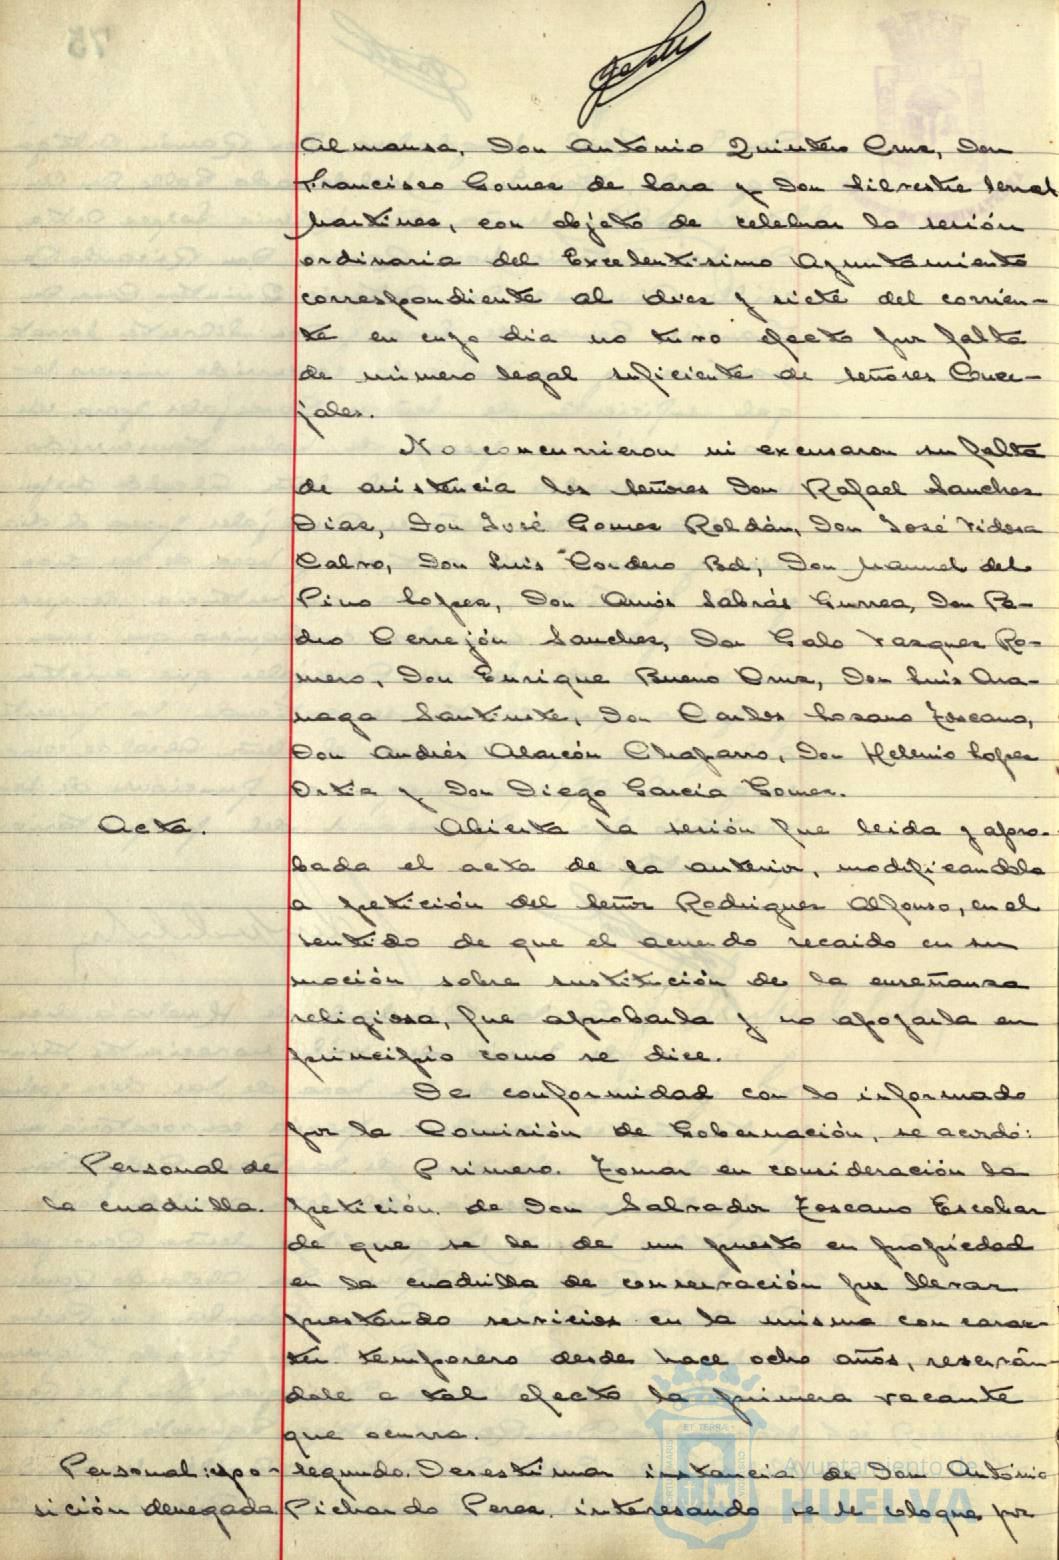 Almansa, Don Antonio Quintero Cruz, Don
Francisco Gomez de Lara y Don Silvestre Bernal
Martinez, con objeto de celebrar la sesión
ordinaria del Excelentisimo Ayuntamiento
correspondiente al diez y siete del corrien-
te en cuyo dia no tuvo efecto por falta
de número legal suficiente de señores Conce-
jales.
No concurrieron ni excusaron su falta
de asistencia los señores Don Rafael Sanchez
Diaz, Don José Gomez Roldán, Don José Tidera
Calvo, Don Luis Cordero Bel, Don Manuel del
Pino Lopez, Don Amós Sabrás Gurrea, Don Pe-
dro Cerrejón Sanchez, Don Galo Vazquez Ro-
mero, Don Enrique Bueno Cruz, Don Luis Ma-
Don Carlos Lozano Toscano,
Don Andrés Alarcón Chaparro, Don Helenio Lopez
Ortia y Don Diego Garcia Gomez.
Acta.
Abierta la sesión fue leida y apro-
bada el acta de la anterior, modificandola
a petición del señor Rodriguez Alfonso, en el
sentido de que el acuerdo recaido en su
moción sobre sustitución de la enseñanza
religiosa, fue aprobarla y no apoyarla en
principio como se dice.
De conformidad con lo informado
por la Comisión de Gobernación, se acordó:
Personal de
la cuadrilla.
Primero. Tomar en consideración la
petición de Don Salvador Toscano Escobar
de que se le de un puesto en propiedad
en la cuadrilla de conservación por llevar
prestando servicios en la misma con carac-
ter temporero desde hace ocho años, reserván-
dole a tal efecto la primera vacante
que ocurra.
Personal: opo-
sición denegada
Segundo. Desestimar instancia de Don Antonio
Pichardo Perez, interesando se le coloque por
Ayuntamiento de
HUELVA
75